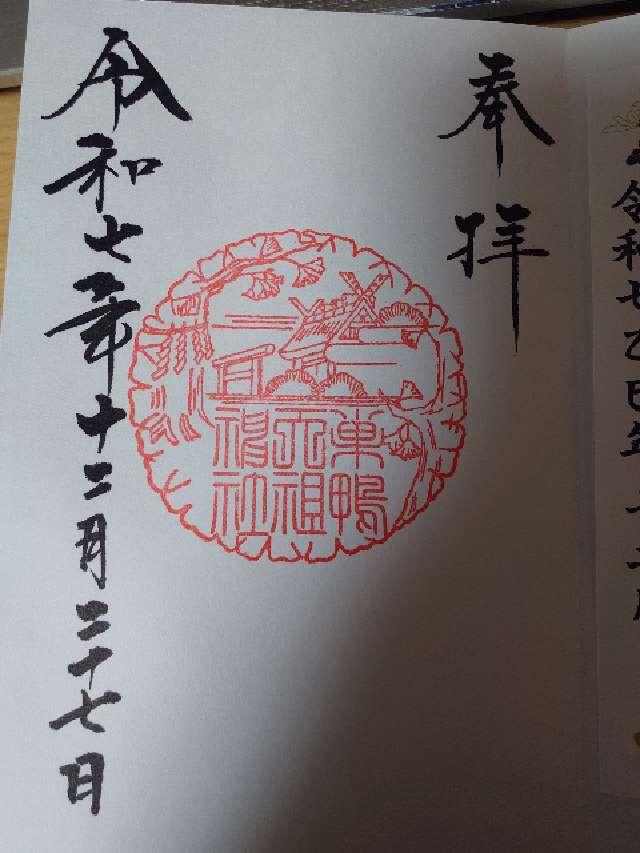 令和七乙巳年
奉拝
巣鴨
天祖
神社
令和七年十二月二十七日